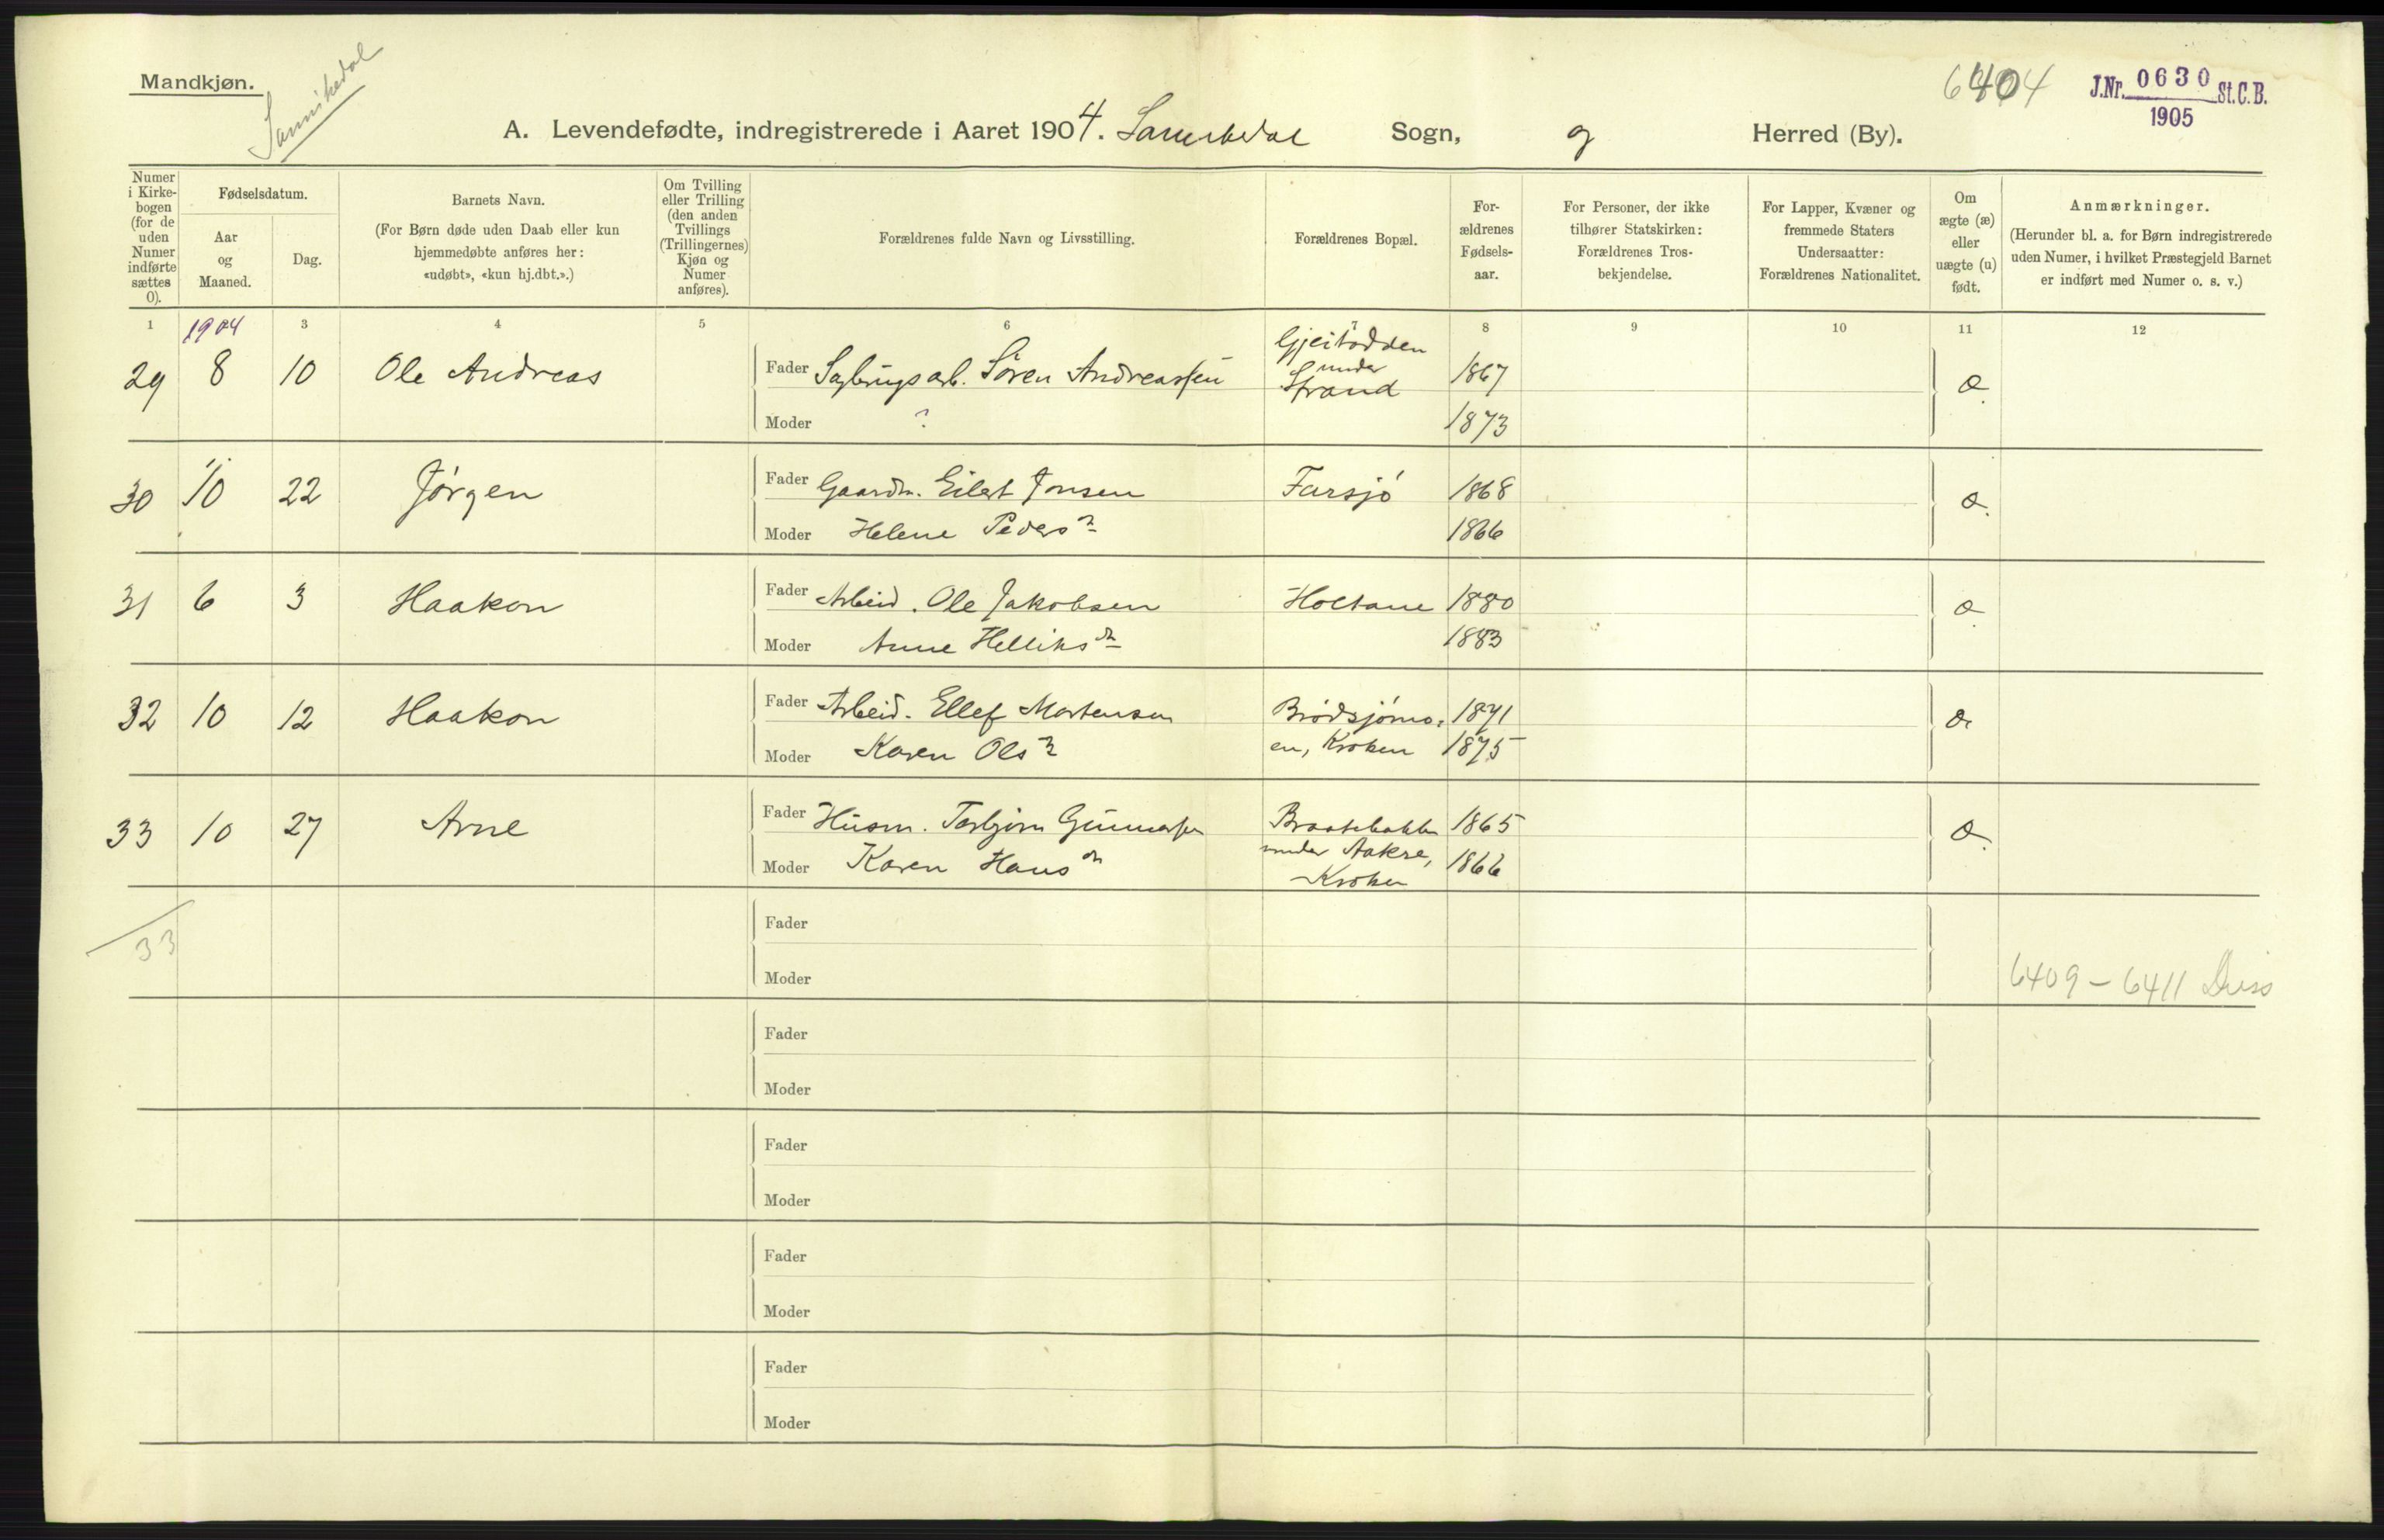 Mandkjøn.
Sannikedal
6404
J.Nr. 0630 St.C.B.
1905
A. Levendefødte, indregistrerede i Aaret 1904. Sannikedal Sogn, og Herred (By).
Numer i Kirkebogen (for de uden Numer indførte sættes 0).
Fødselsdatum.
Aar og Maaned.
Dag.
Barnets Navn.
(For Børn døde uden Daab eller kun hjemmedøbte anføres her: «udøbt», «kun hj.dbt.».)
Om Tvilling eller Trilling (den anden Tvillings (Trillingernes) Kjøn og Numer anføres).
Forældrenes fulde Navn og Livsstilling.
Forældrenes Bopæl.
Forældrenes Fødselsaar.
For Personer, der ikke tilhører Statskirken: Forældrenes Trosbekjendelse.
For Lapper, Kvæner og fremmede Staters Undersaatter: Forældrenes Nationalitet.
Om ægte (æ) eller uægte (u) født.
Anmærkninger.
(Herunder bl. a. for Børn indregistrerede uden Numer, i hvilket Præstegjeld Barnet er indført med Numer o. s. v.)
1 1904 3 4 5 6 7 8 9 10 11 12
29 8 10 Ole Andreas Fader Sagbrugsarb. Søren Andreassen Gjeitodden under Strand 1867 æ.
Moder ? 1873
30 10 22 Jørgen Fader Gaardm. Eilert Jonsen Farsjø 1868 æ.
Moder Helene Pedersn 1866
31 6 3 Haakon Fader Arbeid. Ole Jakobsen Holtane 1880 æ.
Moder Anne Helliksdr 1883
32 10 12 Haakon Fader Arbeid. Ellef Mortensen Brødsjømo- 1871 æ.
Moder Karen Olsn en, Kroken 1875
33 10 27 Arne Fader Husm. Torbjørn Gunnarsen Braatebakken 1865 æ.
Moder Karen Hansdr under Aakre, Kroken 1866
33
Fader
Moder
6409-6411
Fader
Moder
Fader
Moder
Fader
Moder
Fader
Moder